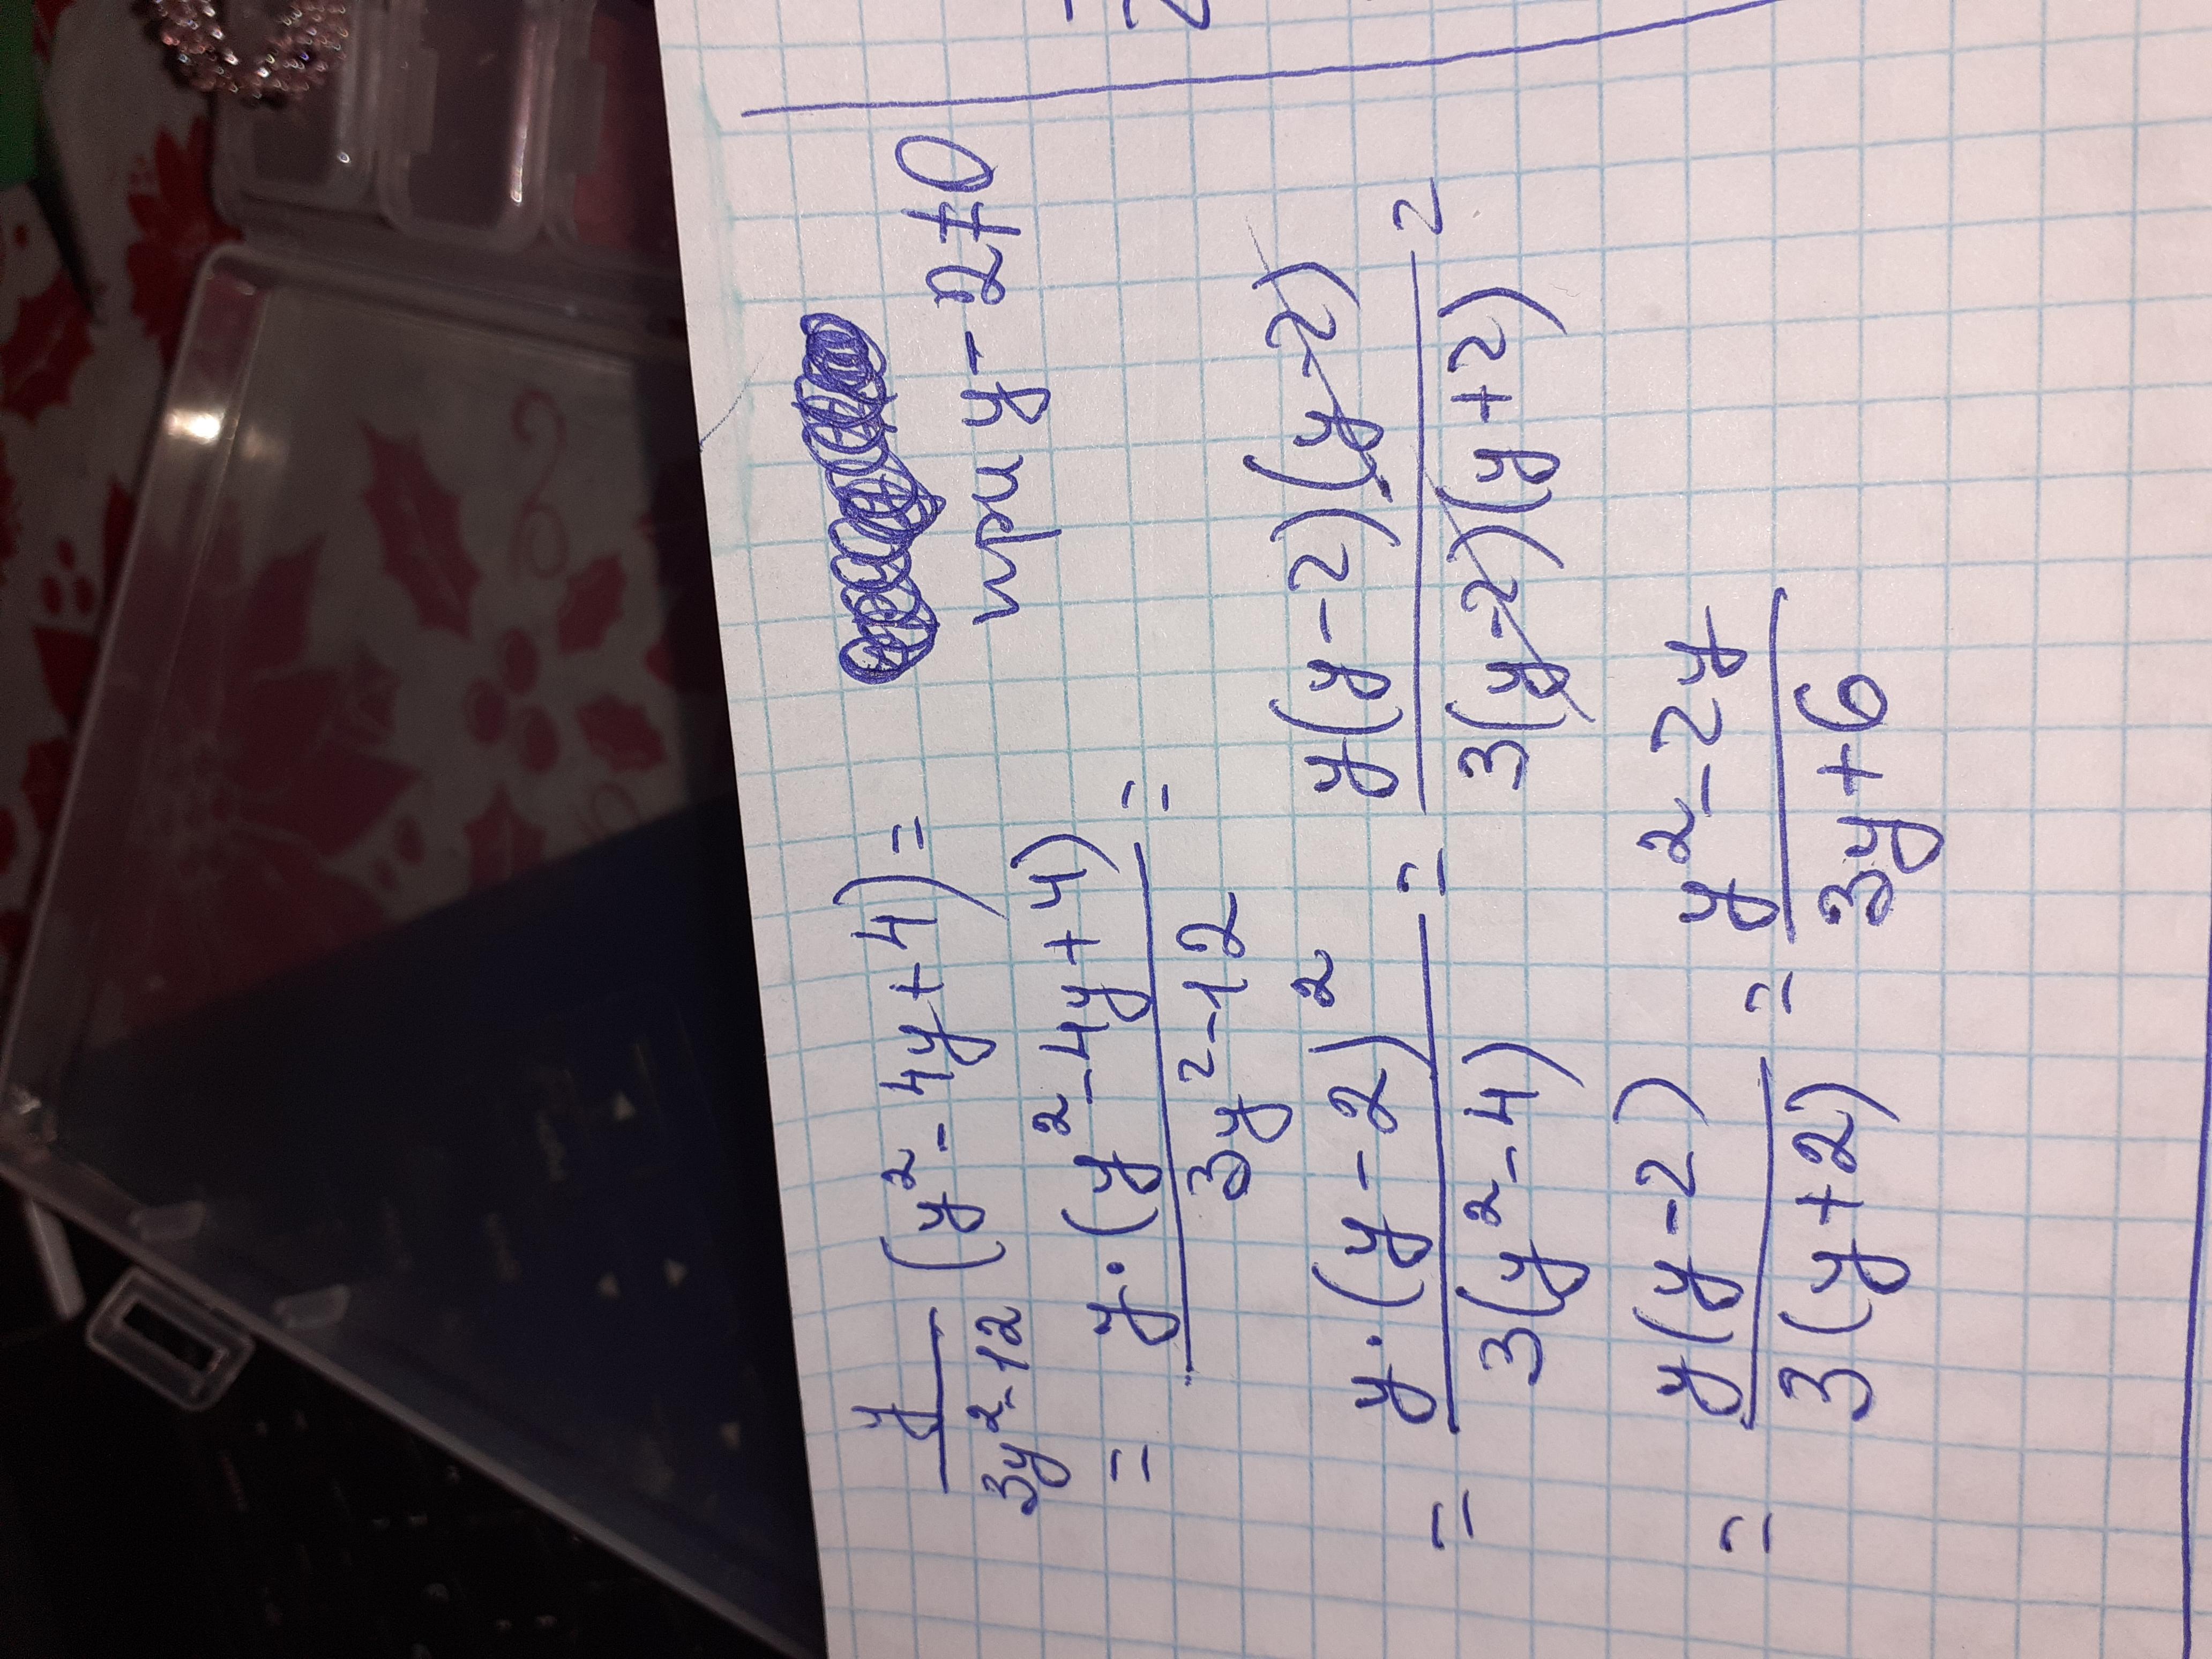 y/(3y²-12) (y²-4y+4) =
при y-2≠0
= y·(y²-4y+4)/(3y²-12) =
= y·(y-2)²/(3(y²-4)) = y(y-2)(y-2)/(3(y-2)(y+2)) =
= y(y-2)/(3(y+2)) = (y²-2y)/(3y+6)